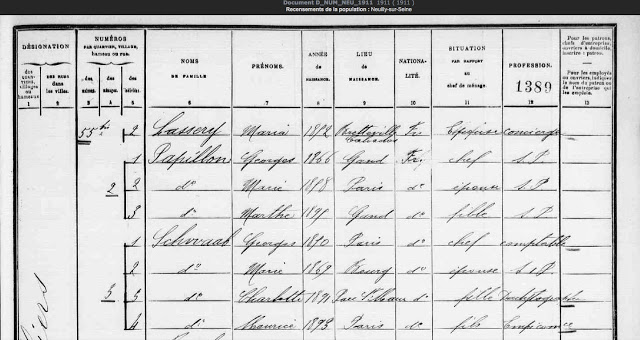 Document D_NUM_NEU_1911 1911 ( 1911 )
Recensements de la population : Neuilly-sur-Seine
DÉSIGNATION
NUMÉROS
PAR QUARTIER, VILLAGE,
hameau ou rue.
NOMS
DE FAMILLE
PRÉNOMS.
ANNÉE
de
NAISSANCE.
LIEU
de
NAISSANCE.
NATIONA-
LITÉ.
SITUATION
PAR RAPPORT
au
chef de ménage.
PROFESSION.
1389
Pour les patrons,
chefs d'entreprise,
ouvriers à domicile,
inscrire : patron.
Pour les employés
ou ouvriers, indiquer
le nom du patron ou
de l'entreprise qui
les emploie.
des
QUAR-
TIERS,
villages
ou
hameaux
DES RUES
dans
les villes.
des
des
des
1 2 3 4 5 6 7 8 9 10 11 12 13
55 bis 2 Lassery Maria 1872 Bretteville Calvados Fr Epouse concierge
1 Papillon Georges 1866 Gand Fr chef S.P
2 2 do Marie 1878 Paris do épouse S.P
3 do Marthe Gand do fille S.P
1 Schwaab Georges 1870 Paris do chef comptable
2 do Marie 1869 Bourg do épouse S.P
3 3 do Charlotte 1891 do fille Dactylographe
4 do Maurice 1893 Paris do fils Employé